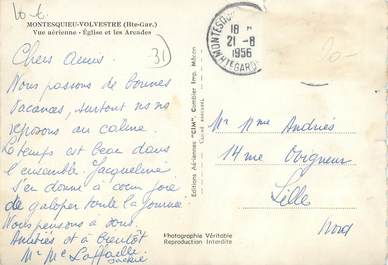 10-6
MONTESQUIEU-VOLVESTRE (Hte-Gar.)
Vue aérienne - Église et les Arcades
31
Chers Amis.
Nous passons de bonnes
vacances, surtout ns ns
reposons au calme.
Le temps est beau dans
l'ensemble. Jacqueline
s'en donne à cœur joie
de galoper toute la journée.
Nous pensons à vous.
Amitiés et à bientôt
Mr Me Laffaille
Editions Aériennes "CIM", Combier Imp. Mâcon
MONTESQUIEU
18 H
21-8
1956
HTE GARONNE
Mr Mme Andriés
14 rue Ovigneur
Lille
Nord
Photographie Véritable
Reproduction Interdite